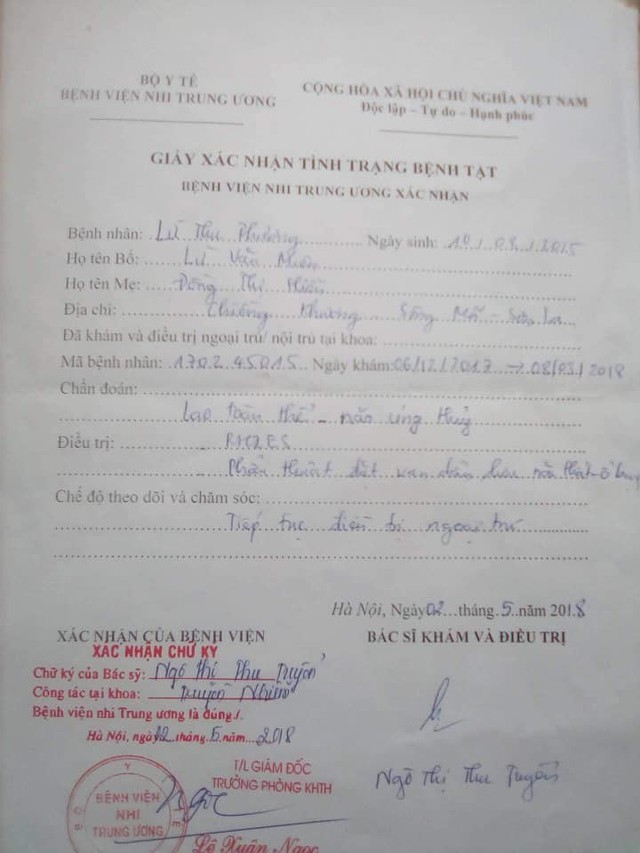 BỘ Y TẾ
BỆNH VIỆN NHI TRUNG ƯƠNG
CỘNG HÒA XÃ HỘI CHỦ NGHĨA VIỆT NAM
Độc lập – Tự do – Hạnh phúc
GIẤY XÁC NHẬN TÌNH TRẠNG BỆNH TẬT
BỆNH VIỆN NHI TRUNG ƯƠNG XÁC NHẬN
Bệnh nhân: Lừ Thu Phương Ngày sinh: /08/2015
Họ tên Bố: Lừ Văn
Họ tên Mẹ: Thị
Địa chỉ: Chiềng Khương - Sông Mã - Sơn La
Đã khám và điều trị ngoại trú/ nội trú tại khoa:
Mã bệnh nhân: 170245015 Ngày khám: 06/12/2017 → 08/03/2018
Chẩn đoán:
Lao toàn thể - não úng thủy
Điều trị: RHZES
Phẫu thuật đặt van dẫn lưu não thất - ổ bụng
Chế độ theo dõi và chăm sóc:
Tiếp tục điều trị ngoại trú
Hà Nội, Ngày 02 tháng 5 năm 2018
XÁC NHẬN CỦA BỆNH VIỆN
BÁC SĨ KHÁM VÀ ĐIỀU TRỊ
XÁC NHẬN CHỮ KÝ
Chữ ký của Bác sỹ: Ngô Thị Thu Tuyển
Công tác tại khoa: Truyền Nhiễm
Bệnh viện nhi Trung ương là đúng./.
Hà Nội, ngày 02 tháng 5 năm 2018
T/L GIÁM ĐỐC
TRƯỞNG PHÒNG KHTH
BỆNH VIỆN
NHI
TRUNG ƯƠNG
Ngô Thị Thu Tuyển
Lê Xuân Ngọc